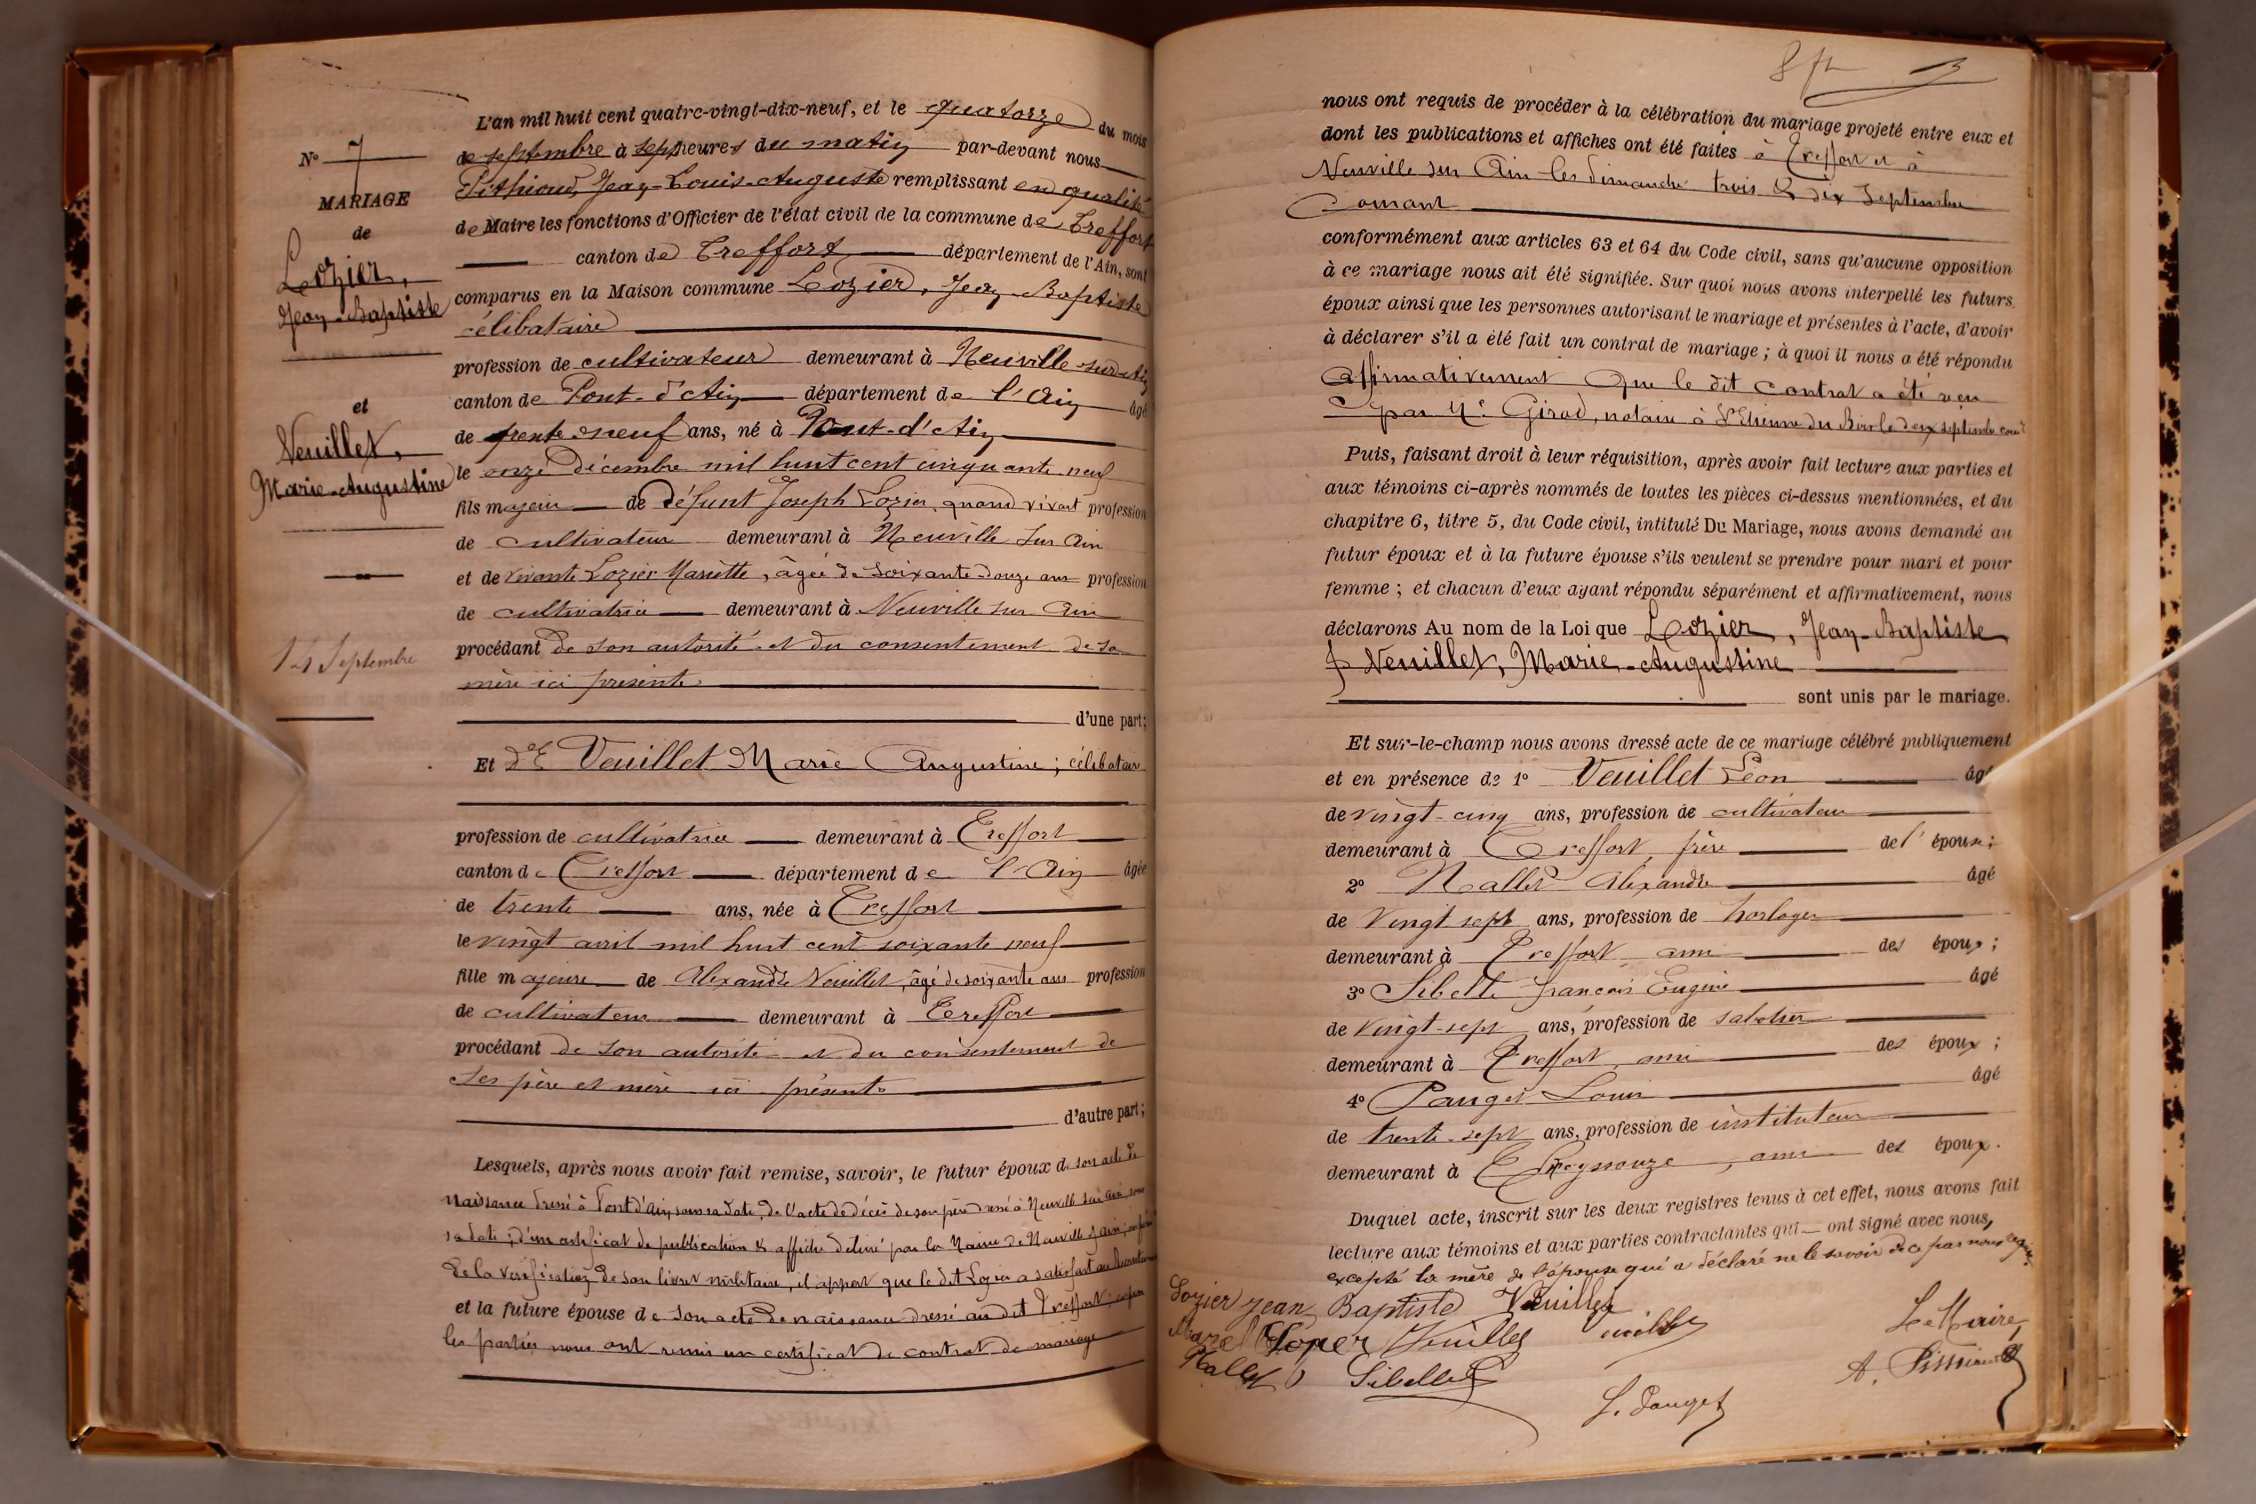 N° 7
MARIAGE
de
Lozier,
Jean-Baptiste
et
Veuillet,
Marie-Augustine
14 Septembre
L'an mil huit cent quatre-vingt-dix-neuf, et le quatorze du mois
de septembre à sept heures du matin par-devant nous
Pithioud, Jean-Louis-Auguste remplissant en qualité
de Maire les fonctions d'Officier de l'état civil de la commune de Treffort
canton de Treffort département de l'Ain, sont
comparus en la Maison commune Lozier, Jean-Baptiste
célibataire
profession de cultivateur demeurant à Neuville-sur-Ain
canton de Pont-d'Ain département de l'Ain âgé
de trente-neuf ans, né à Pont-d'Ain
le onze Décembre mil huit cent cinquante neuf
fils majeur de défunt Joseph Lozier, quand vivait profession
de cultivateur demeurant à Neuville sur Ain
et de vivante Lozier Mariette, âgée de soixante-douze ans profession
de cultivatrice demeurant à Neuville sur Ain
procédant de son autorité et du consentement de sa
mère ici présente
d'une part;
Et Dlle Veuillet Marie Augustine; célibataire
profession de cultivatrice demeurant à Treffort
canton de Treffort département de l'Ain âgée
de trente ans, née à Treffort
le vingt avril mil huit cent soixante neuf
fille majeure de Alexandre Veuillet, âgé de soixante ans profession
de cultivateur demeurant à Treffort
procédant de son autorité et du consentement de
ses père et mère ici présents
d'autre part;
Lesquels, après nous avoir fait remise, savoir, le futur époux de son acte de
naissance dressé à Pont d'Ain, sous sa date, de l'acte de décès de son père dressé à Neuville sur Ain sous
sa date; d'un certificat de publication & affiches délivré par la Mairie de Neuville s/ain;
de la vérification de son livret militaire, il appert que le dit Lozier a satisfait au recrutement
et la future épouse de son acte de naissance dressé au dit Treffort; enfin
les parties nous ont remis un certificat de contrat de mariage
nous ont requis de procéder à la célébration du mariage projeté entre eux et
dont les publications et affiches ont été faites à Treffort et à
Neuville sur Ain les dimanche trois & dix Septembre
Courant
conformément aux articles 63 et 64 du Code civil, sans qu'aucune opposition
à ce mariage nous ait été signifiée. Sur quoi nous avons interpellé les futurs
époux ainsi que les personnes autorisant le mariage et présentes à l'acte, d'avoir
à déclarer s'il a été fait un contrat de mariage; à quoi il nous a été répondu
affirmativement que le dit contrat a été reçu
par Me Girod, notaire à St Etienne du Bois le deux septembre cour
Puis, faisant droit à leur réquisition, après avoir fait lecture aux parties et
aux témoins ci-après nommés de toutes les pièces ci-dessus mentionnées, et du
chapitre 6, titre 5, du Code civil, intitulé Du Mariage, nous avons demandé au
futur époux et à la future épouse s'ils veulent se prendre pour mari et pour
femme; et chacun d'eux ayant répondu séparément et affirmativement, nous
déclarons Au nom de la Loi que Lozier, Jean-Baptiste
& Veuillet, Marie-Augustine
sont unis par le mariage.
Et sur-le-champ nous avons dressé acte de ce mariage célébré publiquement
et en présence de 1° Veuillet Léon âgé
de vingt-cinq ans, profession de cultivateur
demeurant à Treffort, frère de l'épouse;
2° Nallet Alexandre âgé
de vingt sept ans, profession de horloger
demeurant à Treffort ami des époux;
3° Sibelle François Eugène âgé
de vingt-sept ans, profession de sabotier
demeurant à Treffort, ami des époux;
4° Pauget Louis âgé
de trente-sept ans, profession de instituteur
demeurant à Reyssouze, ami des époux.
Duquel acte, inscrit sur les deux registres tenus à cet effet, nous avons fait
lecture aux témoins et aux parties contractantes qui ont signé avec nous,
excepté la mère de l'épouse qui a déclaré ne le savoir de ce par nous requise
Lozier Jean Baptiste Veuillet
Lozier Veuillet
Nallet Sibelle
L. Pauget
Le Maire,
A. Pithioud